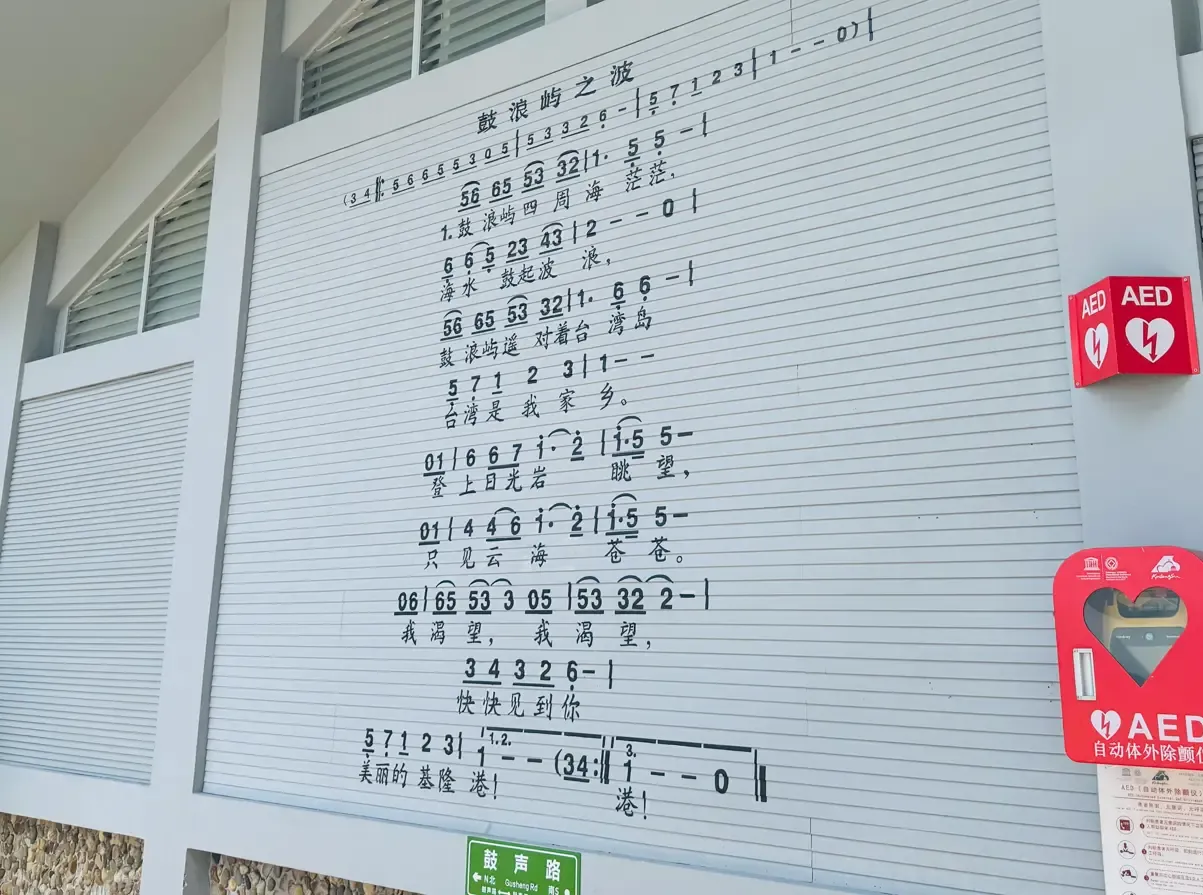 鼓浪屿之波
(3 4 ‖: 5 6 6 5 5 3 0 5 | 5 3 3 2 6 - | 5 7 1 2 3 | 1 - - 0) |
56 65 53 32 | 1· 5 5 - |
1. 鼓 浪屿四 周 海 茫茫，
6 6 5 23 43 | 2 - - 0 |
海 水 鼓起波 浪，
56 65 53 32 | 1· 6 6 - |
鼓 浪屿遥 对着台 湾岛
5 7 1 2 3 | 1 - -
台湾是 我 家 乡。
01 | 6 6 7 i· 2 | i·5 5 -
登 上日光岩 眺 望，
01 | 4 4 6 i· 2 | i·5 5 -
只 见云 海 苍 苍。
06 | 65 53 3 05 | 53 32 2 - |
我 渴 望， 我 渴 望，
3 4 3 2 6 - |
快快见到你
5 7 1 2 3 | 1.2. 1 - - (34 :‖ 3. 1 - - 0 ‖
美丽的 基隆 港！ 港！
鼓声路
N北 Gusheng Rd 南S
AED AED
AED
自动体外除颤仪